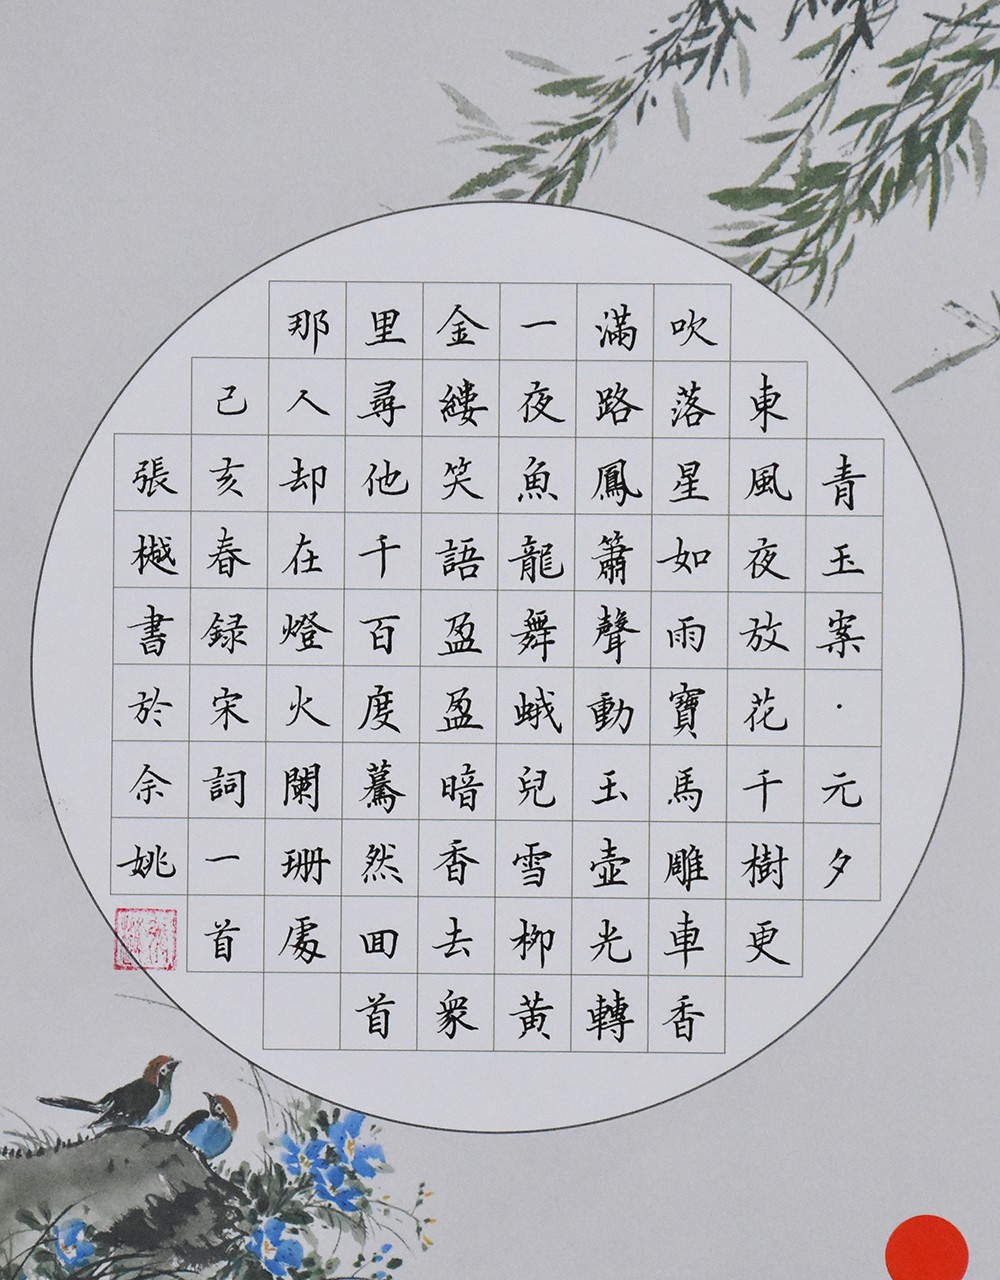 青玉案·元夕
東風夜放花千樹更
吹落星如雨寶馬雕車香
滿路鳳簫聲動玉壺光轉
一夜魚龍舞蛾兒雪柳黃
金縷笑語盈盈暗香去衆
里尋他千百度驀然囬首
那人却在燈火闌珊處
己亥春録宋詞一首
張樾書於余姚